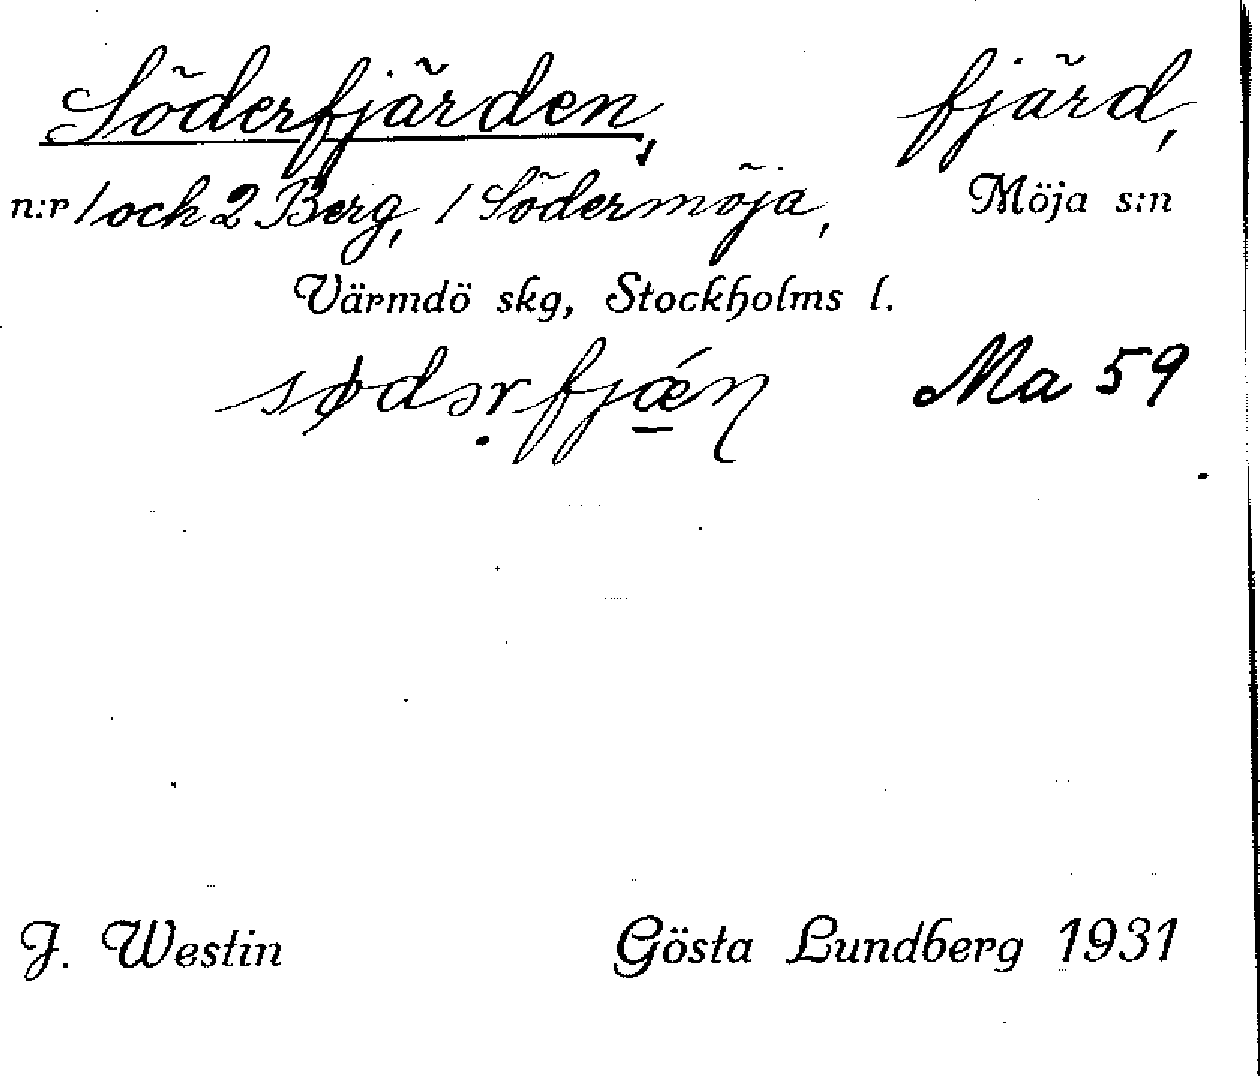 Söderfjärden, fjärd,
n:r 1 och 2 Berg, 1 Södermöja, Möja s:n
Värmdö skg, Stockholms l.
sødəṛfjǽ̱η Ma 59
J. Westin Gösta Lundberg 1931